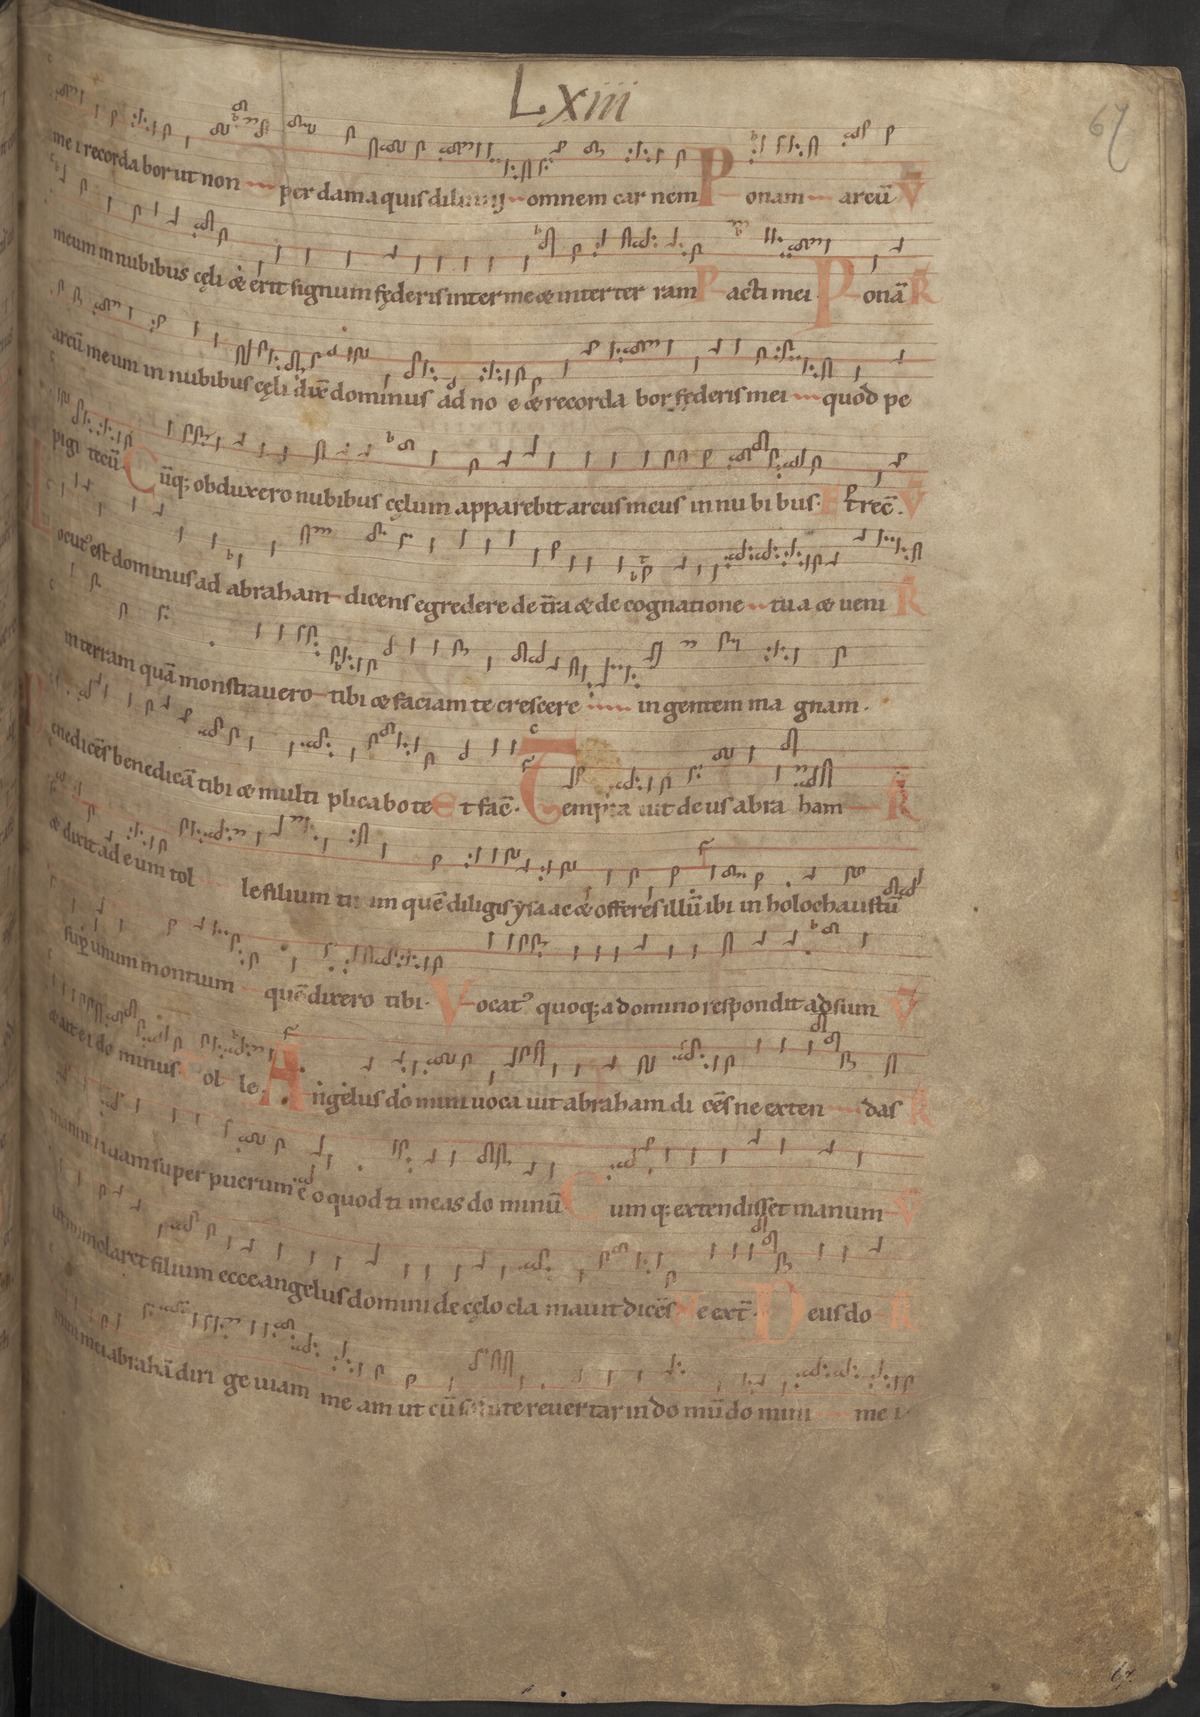 Lxiii
67
mei recorda bor ut non per dam aquis diluuij omnem car nem Ponam arcū V̄
meum in nubibus cęli & erit signum fęderis inter me & inter ter ram Pacti mei. Ponā R̄
arcū meum in nubibus cęli dix̄ dominus ad no e & recorda bor fęderis mei quod pe
pigi tecū Cūq; obduxero nubibus cęlum apparebit arcus meus in nu bi bus. Et rec̄. V̄
Locut' est dominus ad abraham dicens egredere de t̄ra & de cognatione tua & ueni R̄
in terram quā monstrauero tibi & faciam te crescere in gentem ma gnam.
Benedicēs benedicā tibi & multi plicabo te Et fac̄. Temptauit deus abra ham R̄
& dixit ad eum tol le filium tuum quē diligis ysaac & offeres illū ibi in holochaustū
sup unum montium quē dixero tibi. Vocat' quoq; a domino respondit adsum V̄
& ait ei do minus Tol le. Angelus domini uoca uit abraham di cēs ne exten das R̄
manum tuam super puerum eo quod ti meas do minū Cum q; extendisset manum V̄
ut immolaret filium ecce angelus domini de cęlo cla mauit dicēs Ne ext̄. Deus do R̄
mini mei abrahā diri ge uiam me am ut cū salute reuertar in do mū do mini mei
67.